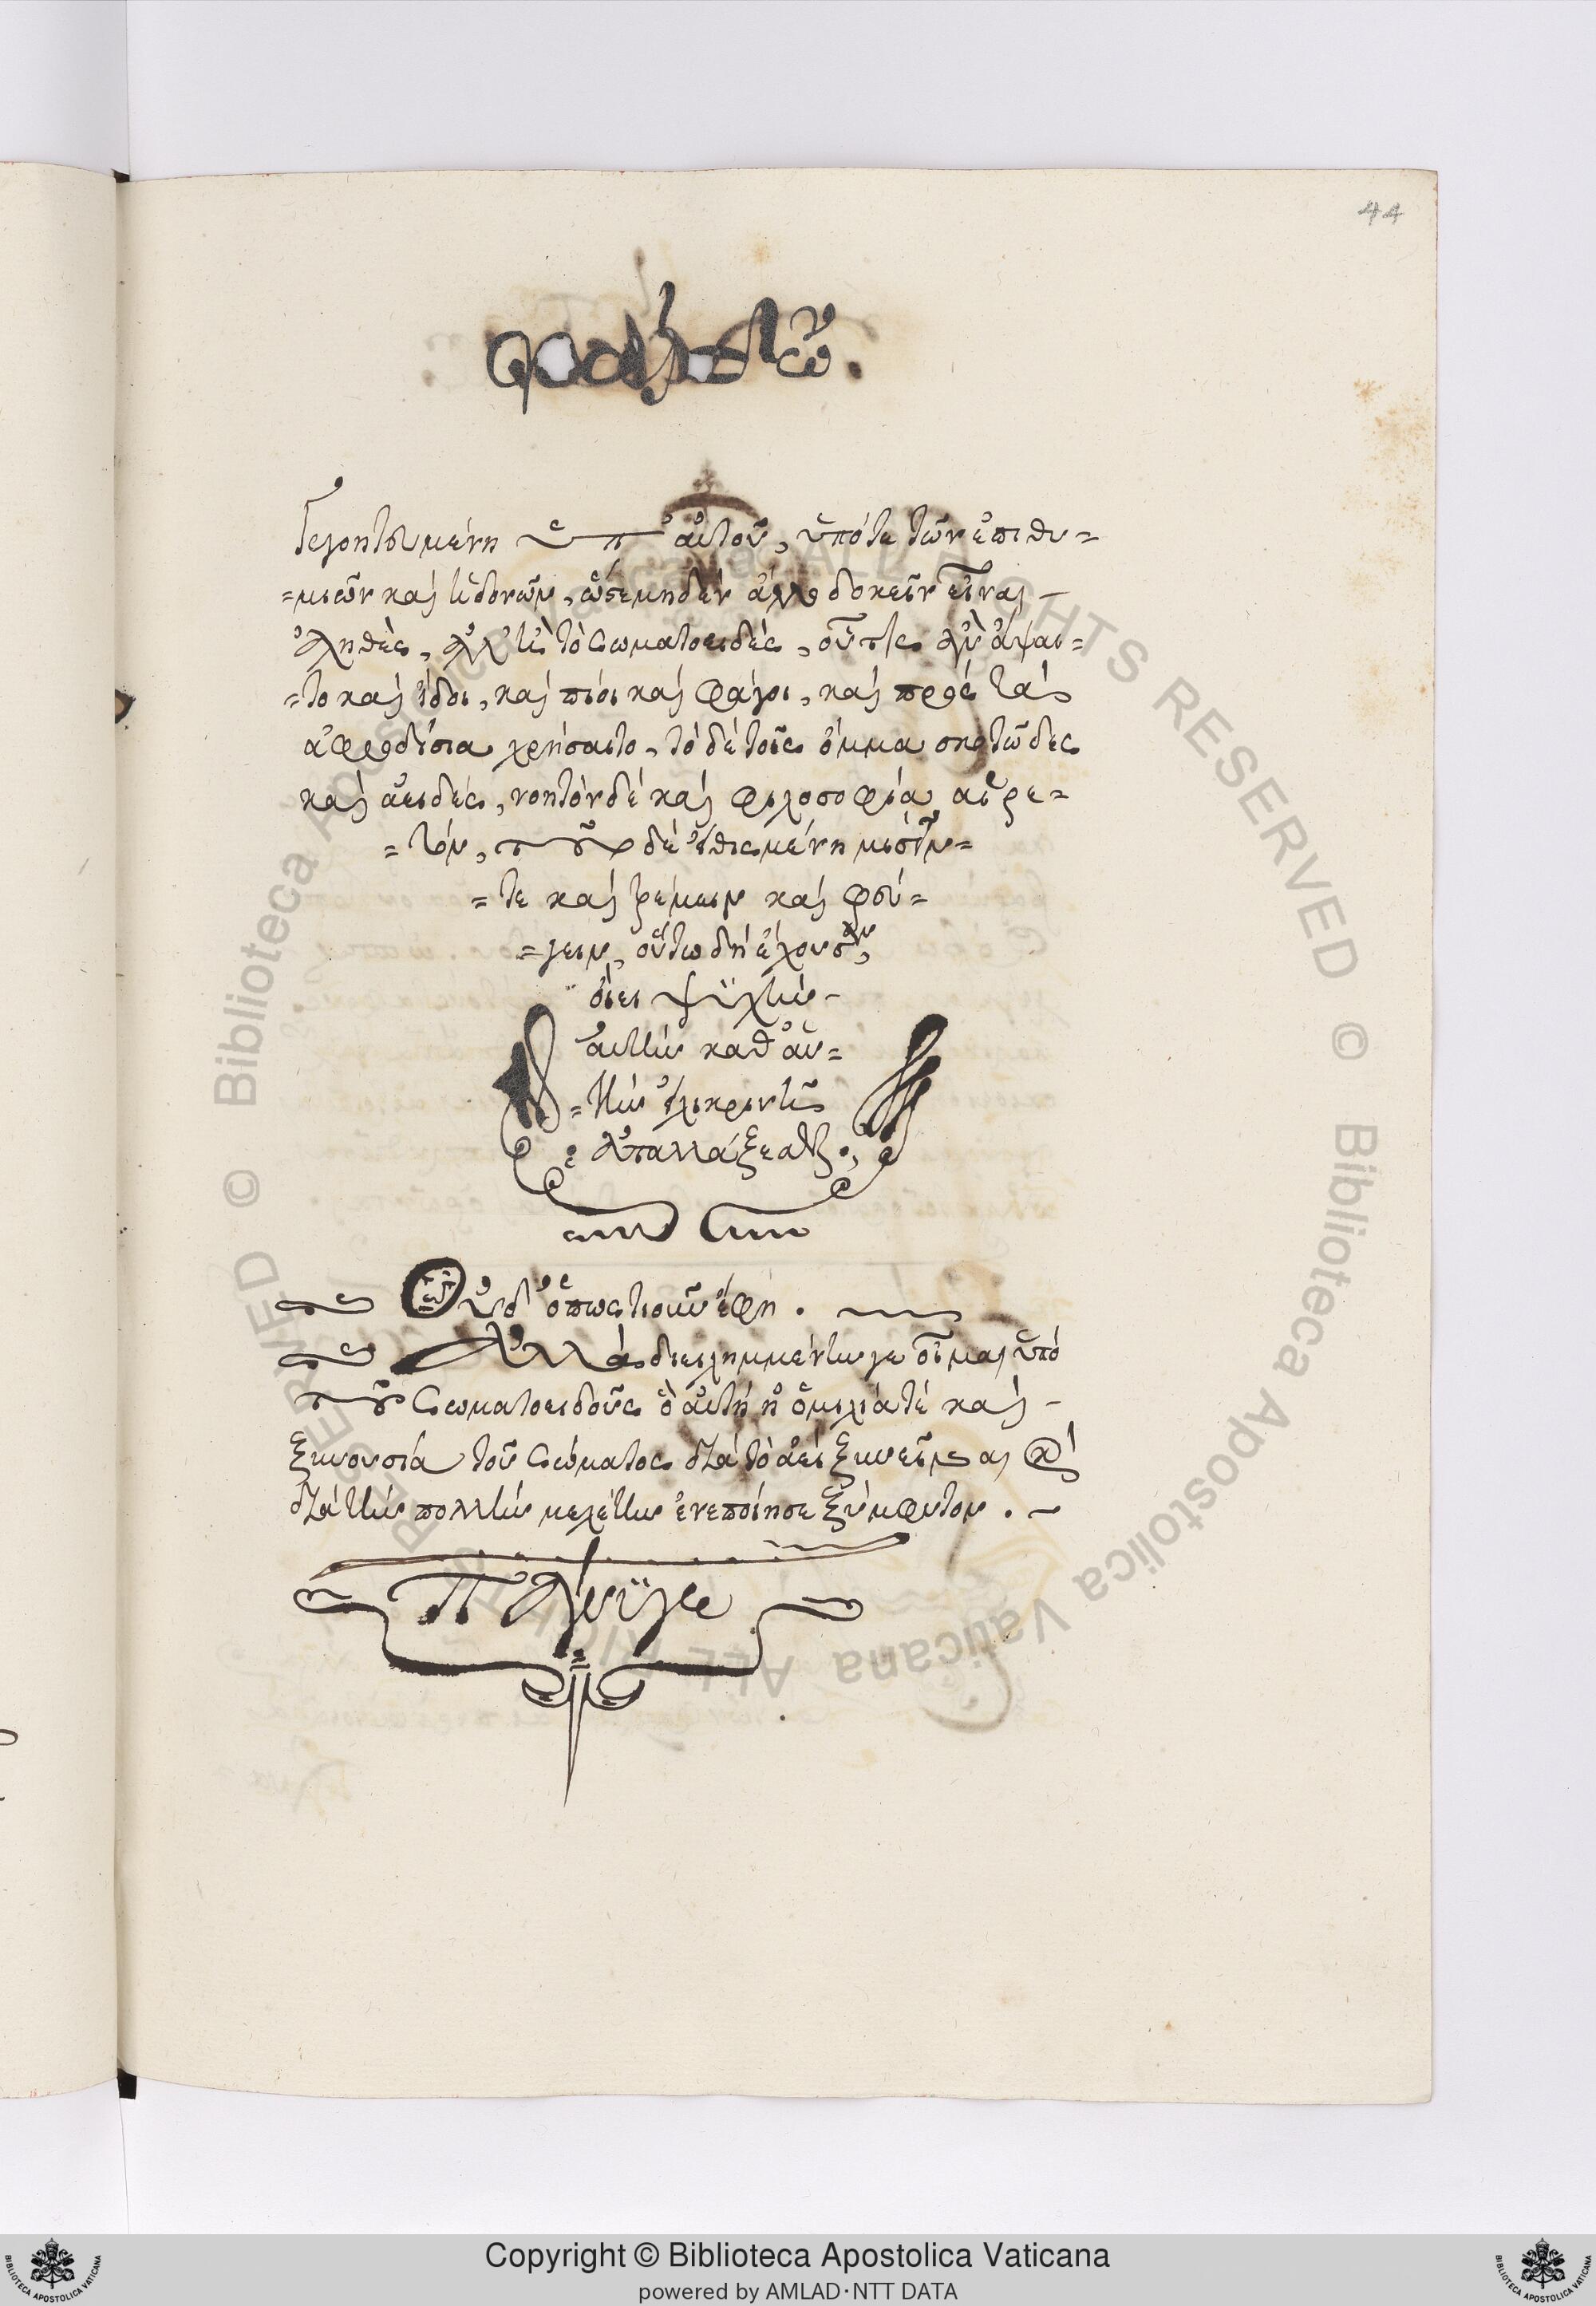 44
γεγοητευμένη ὑπ' αὐτοῦ, ὑπό τε τῶν ἐπιθυ=
=μιῶν καὶ ἡδονῶν, ὥστε μηδὲν ἄλλο δοκεῖν εἶναι -
ἀληθὲς, ἀλλ' ἢ τὸ σωματοειδὲς, οὗ τις ἂν ἅψαι=
=το καὶ ἴδοι, καὶ πίοι καὶ φάγοι, καὶ πρὸς τὰ
ἀφροδίσια χρήσαιτο, τὸ δὲ τοῖς ὄμμα σκοτῶδες
καὶ ἀειδὲς, νοητὸν δὲ καὶ φιλοσοφία αἱρε=
=τόν, τοῦτο δὲ εἰθισμένη μισεῖν=
=τε καὶ τρέμειν καὶ φεύ=
=γειν, οὕτω δὴ ἔχουσαν,
οἴει ψυχὴν -
αὐτὴν καθ' αὑ=
=τὴν εἰλικρινῆ
ἀπαλλάξεσθαι.
Οὐδ' ὁπωστιοῦν ἔφη.
Ἀλλὰ διειλημμένην γε οἶμαι ὑπὸ
τοῦ σωματοειδοῦς ὃ αὐτῇ ἡ ὁμιλία τέ καὶ -
ξυνουσία τοῦ σώματος διὰ τὸ ἀεὶ ξυνεῖναι καὶ
διὰ τὴν πολλὴν μελέτην ἐνεποίησε ξύμφυτον. -
Πάνυ γε
Copyright © Biblioteca Apostolica Vaticana
powered by AMLAD·NTT DATA